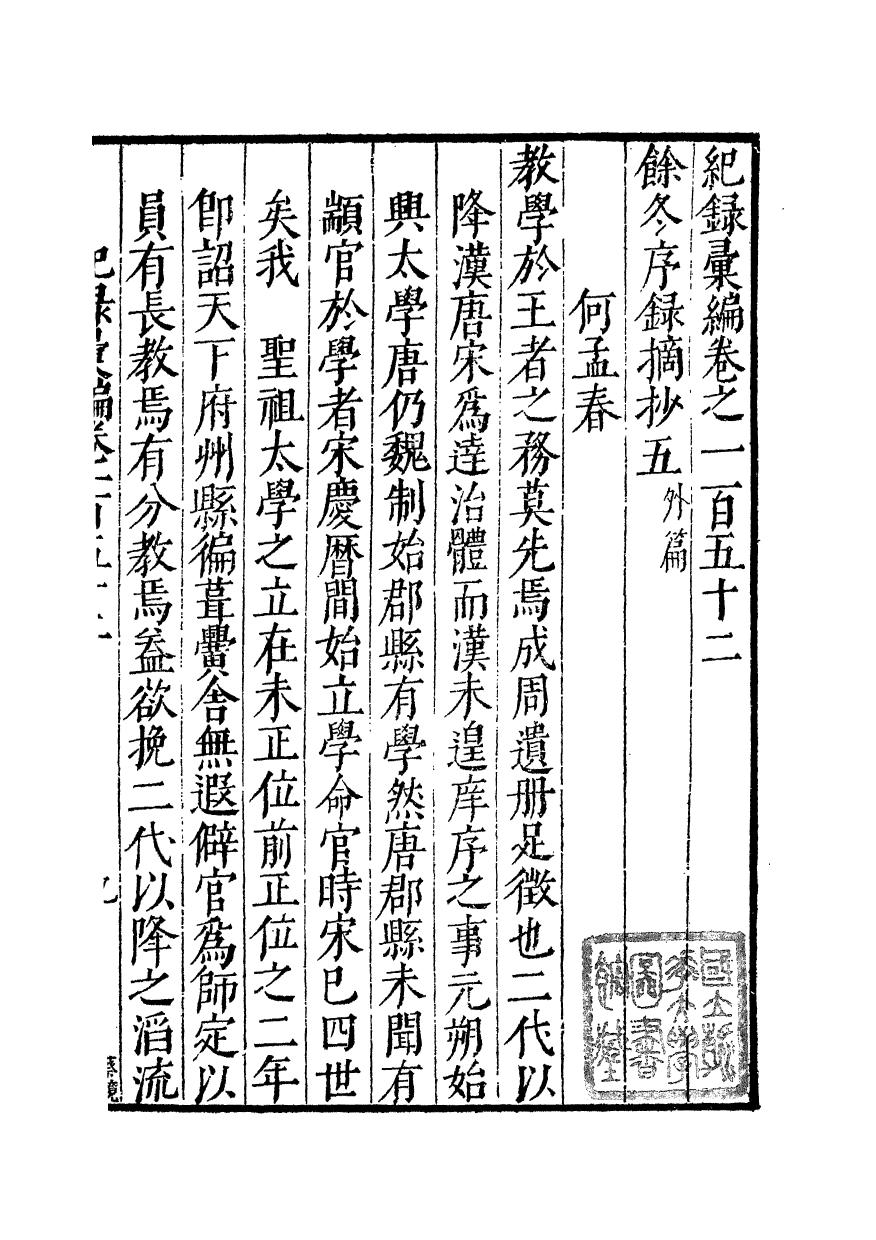 紀録彙編卷之一百五十二
餘冬序録摘抄五 外篇
何孟春
教學於王者之務莫先焉成周遺册足徵也二代以
降漢唐宋爲達治體而漢未遑庠序之事元朔始
興太學唐仍魏制始郡縣有學然唐郡縣未聞有
顓官於學者宋慶暦間始立學命官時宋巳四世
矣我　聖祖太學之立在未正位前正位之二年
卽詔天下府州縣徧葺黌舍無遐僻官爲師定以
員有長教焉有分教焉葢欲挽二代以降之滔流